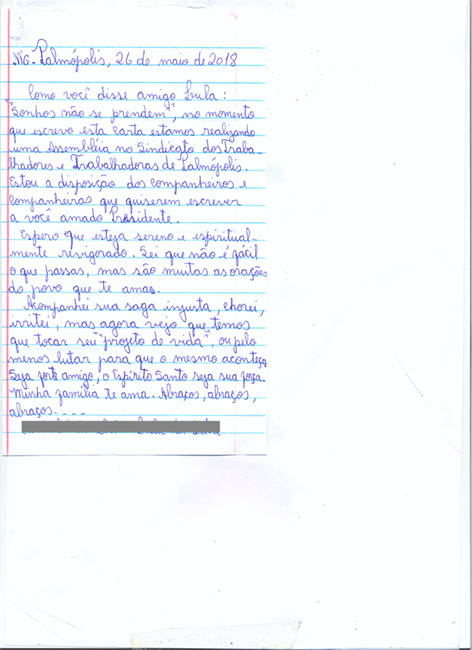 MG. Palmópolis, 26 de maio de 2018
Como você disse amigo Lula:
"Sonhos não se prendem", no momento
que escrevo esta carta estamos realizando
uma Assembléia no Sindicato dos Traba-
lhadores e Trabalhadoras de Palmópolis.
Estou a disposição dos companheiros e
companheiras que quiserem escrever
a você amado Presidente.
Espero que esteja sereno e espiritual-
mente revigorado. Sei que não é fácil
o que passas, mas são muitas as orações
do povo que te ama.
Acompanhei sua saga injusta, chorei,
irritei, mas agora vejo que temos
que tocar seu "projeto de vida", ou pelo
menos lutar para que o mesmo aconteça.
Seja forte amigo, o Espírito Santo seja sua força.
Minha família te ama. Abraços, abraços,
abraços....